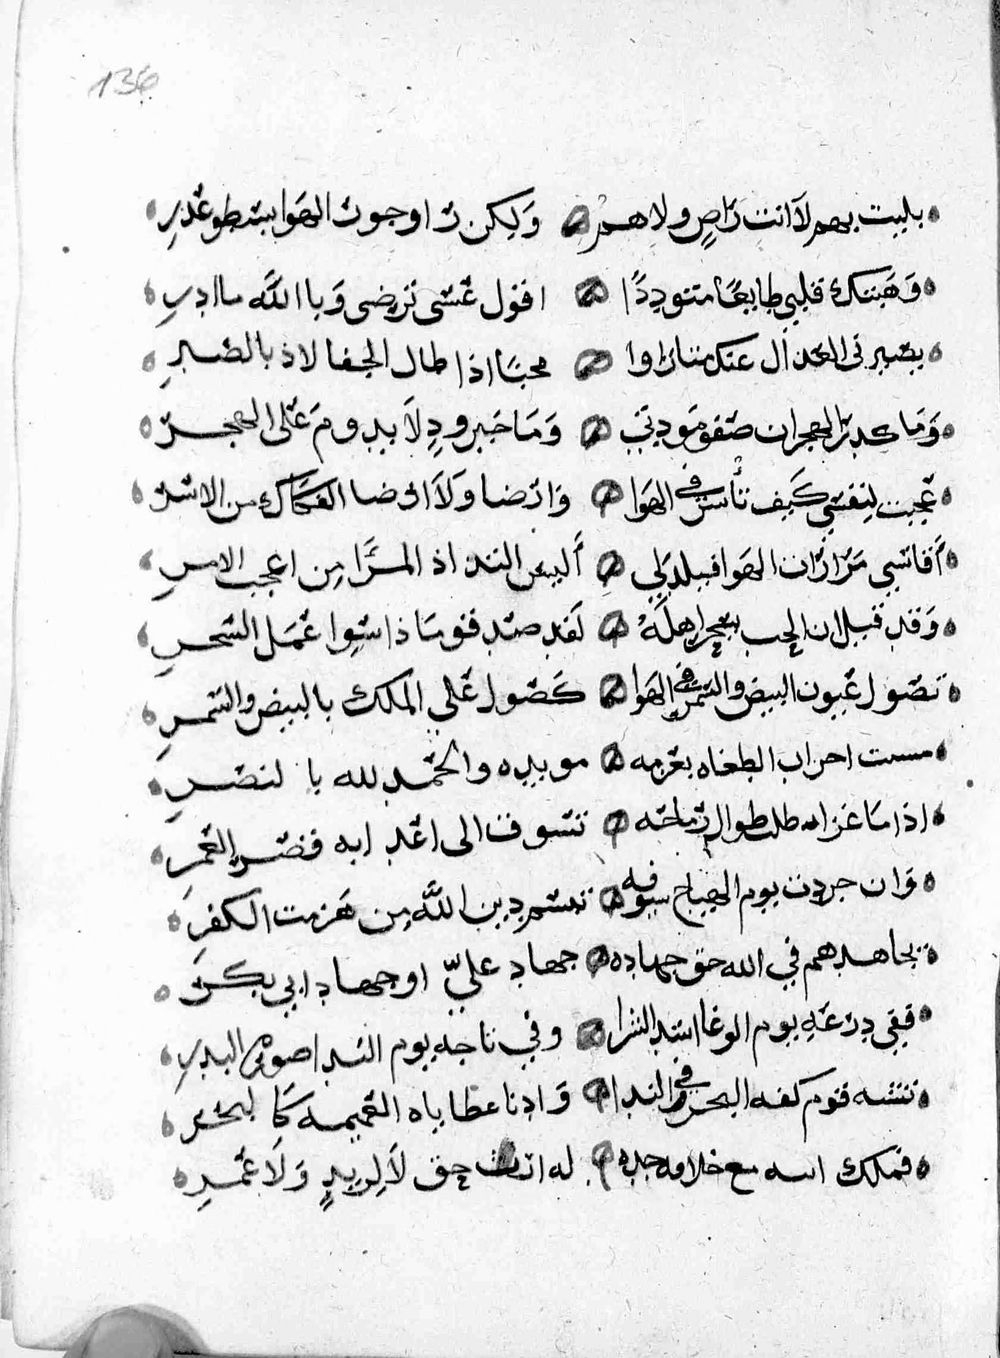 136
بليت بهم لا انت راضٍ ولا هم وَليكن را وجور الهَوا يسَطو عَدرِ
وَهَبتك قلبي طايعًا متوددًا اقول عَسَى ترضى وَبالله ما ادرِ
يصَير في العَدال عنك متاراوا محبًا اذا طال الجفا لاذ بالصَبرِ
وَمَا كدرَ الهجران صَفو مَودتي وَمَا خبر ودٍ لا يدومَ عَلى الهجرْ
عَجبت لنفسي كَيف تأسر في الهَوا وارضا وَلا ارضا الفكاك من الاسْر
أقاسي مَرارات الهَوا فيلد لي أليسَ التداذ المرَّ مِن اعجب الامرِ
وَقد قيل ان الحب سحر اهلهُ لقد صَدقو مَاذا سِوا عَمَل السَحرِ
تصَول عَيون البيض والسَمر في الهَوا كَصَول عَلي الملك بالبيض والسَمرِ
احزاب الطغاه بعَزمه مويده والحَمد لله بالنصَرِ
اذا مَا غزا طوال رماحَه تسَوف الى اعَدابه قصَر العَمرِ
وَان جردت يوم الهياج سيوفه تبسَم دين اللَّه مِن هَزمت الكفرِ
يجاهدهم في الله حق جهاده جهاد عليّ او جهاد ابي بكَر
ففي درعَهِ يوم الوغا اسَد الشرا وفي تاجه يوم الندا صورة البدرِ
تشَبه قوم كفه البحر في الندا وَادنا عَطاياه العَميمه كَالبحَر
فملك الله مع خلامه جده له ارث حق لا لِزيدٍ وَلا عَمرِ